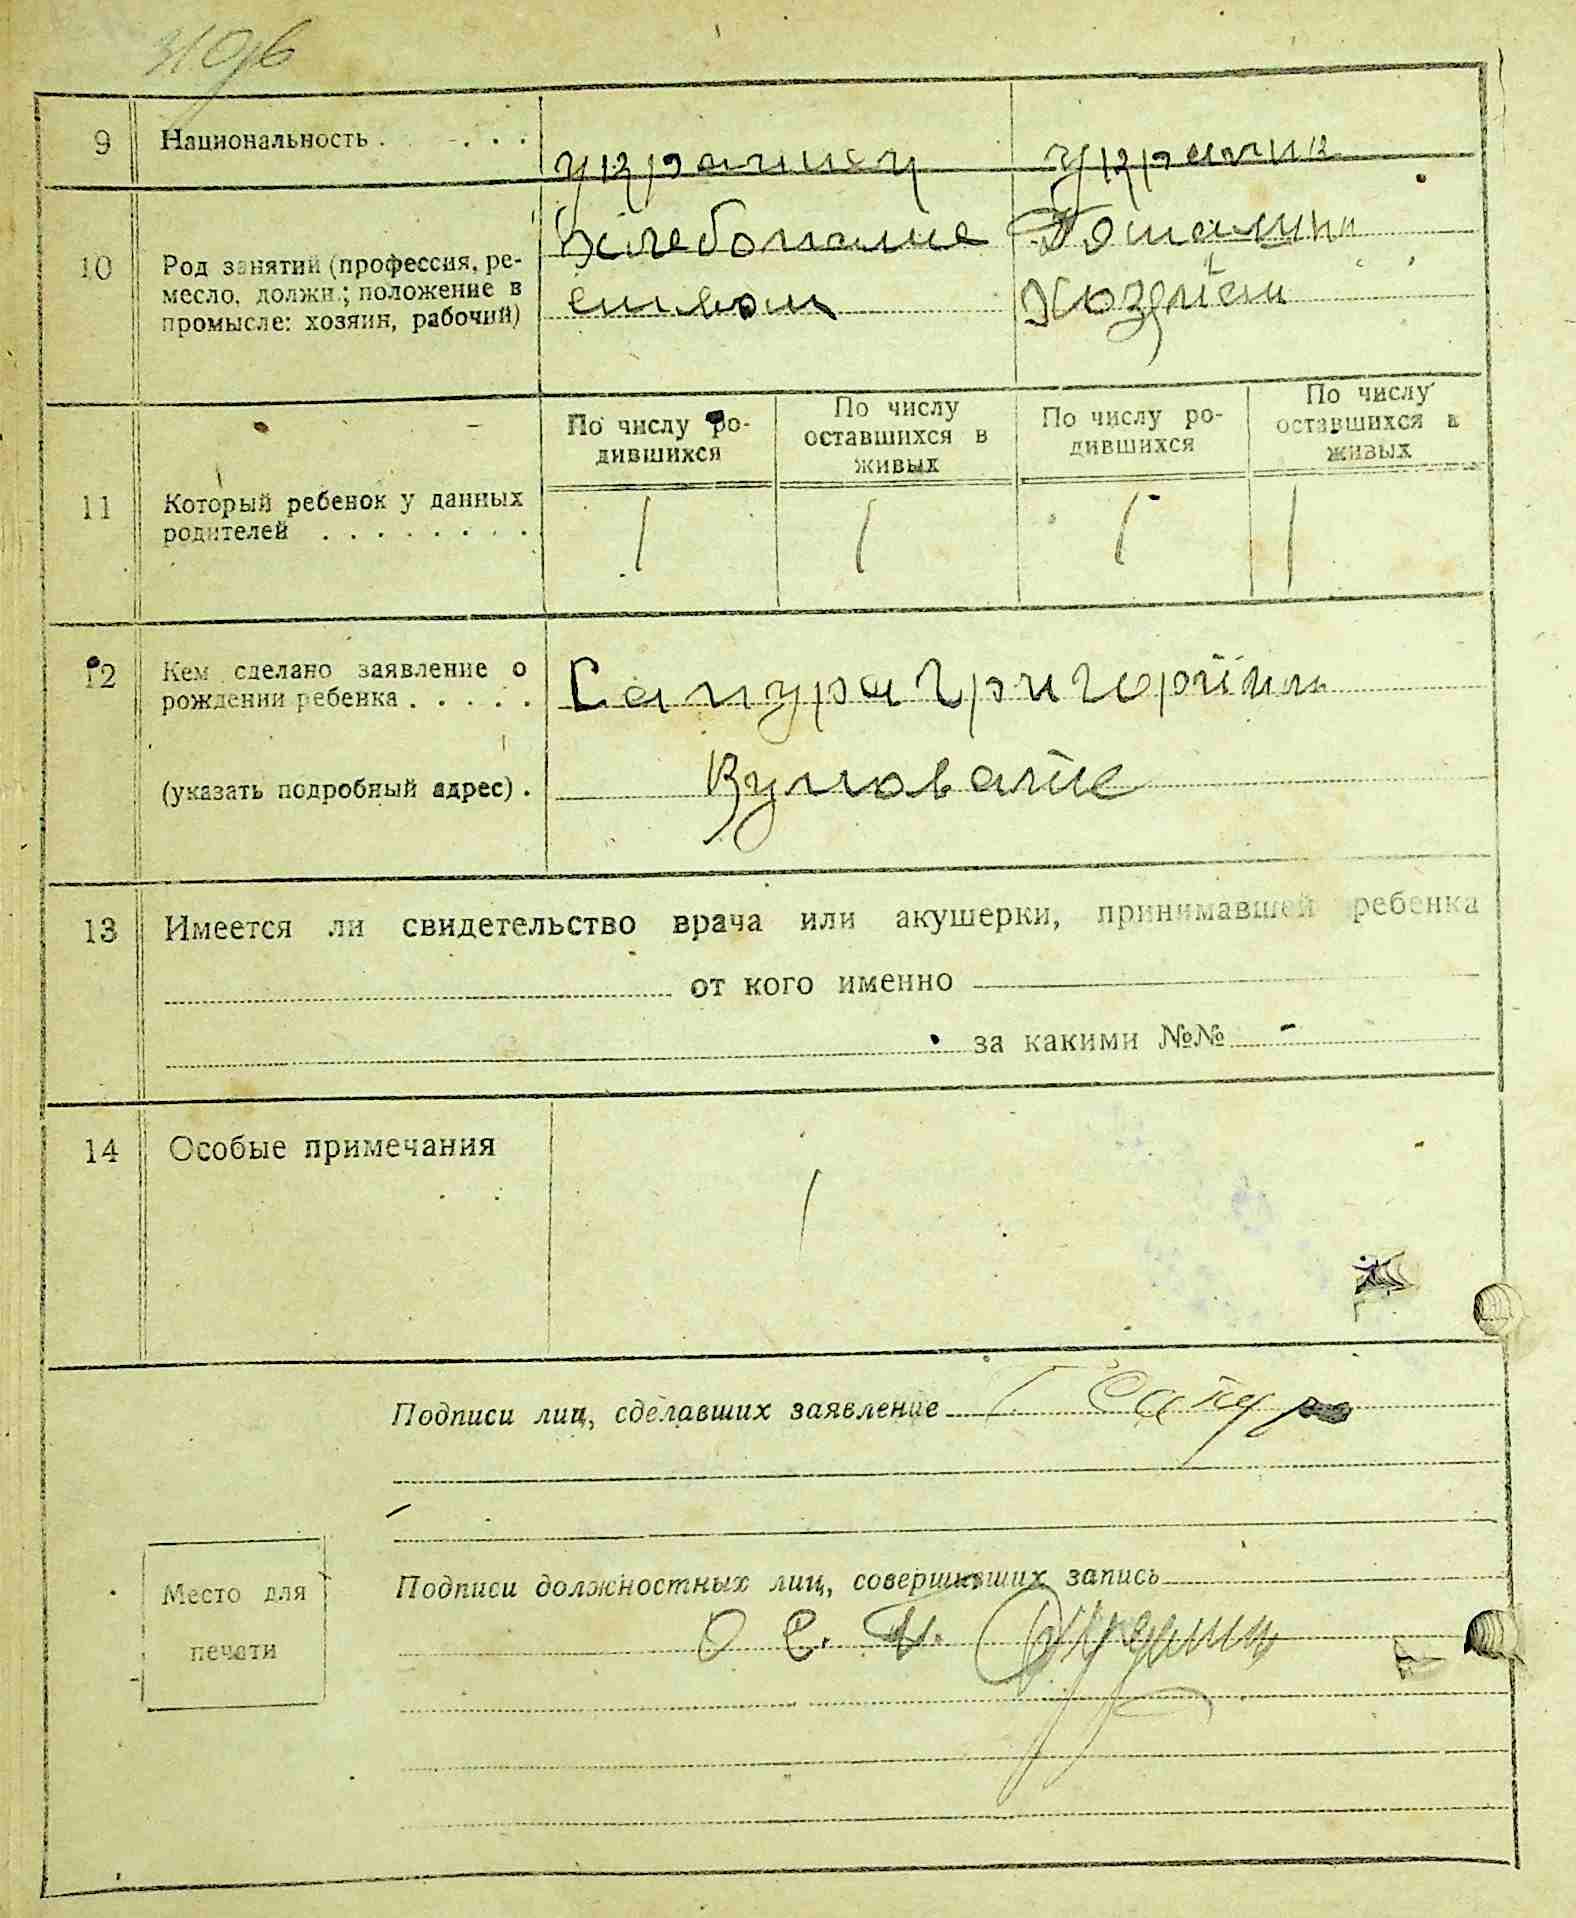 9 Национальность . . . . украинец украинк
10 Род занятий (профессия, ре-
месло, должн.; положение в
промысле: хозяин, рабочий)
Домашни
11 Который ребенок у данных
родителей . . . . . . . .
По числу ро-
дившихся
По числу
оставшихся в
живых
По числу ро-
дившихся
По числу
оставшихся в
живых
1 1 1 1
12 Кем сделано заявление о
рождении ребенка . . . . .
Сапура Григорій
(указать подробный адрес) .
13 Имеется ли свидетельство врача или акушерки, принимавшей ребенка
от кого именно
за какими №№ -
14 Особые примечания
Подписи лиц, сделавших заявление Г Сапура
Подписи должностных лиц, совершивших запись
Место для
печати